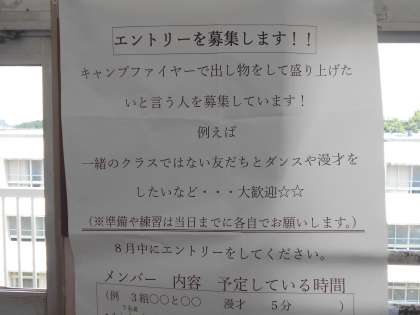 エントリーを募集します！！
キャンプファイヤーで出し物をして盛り上げた
いと言う人を募集しています！
例えば
一緒のクラスではない友だちとダンスや漫才を
したいなど・・・大歓迎☆☆
（※準備や練習は当日までに各自でお願いします。）
８月中にエントリーをしてください。
メンバー　内容　予定している時間
（例　３組〇〇と〇〇　漫才　５分　）